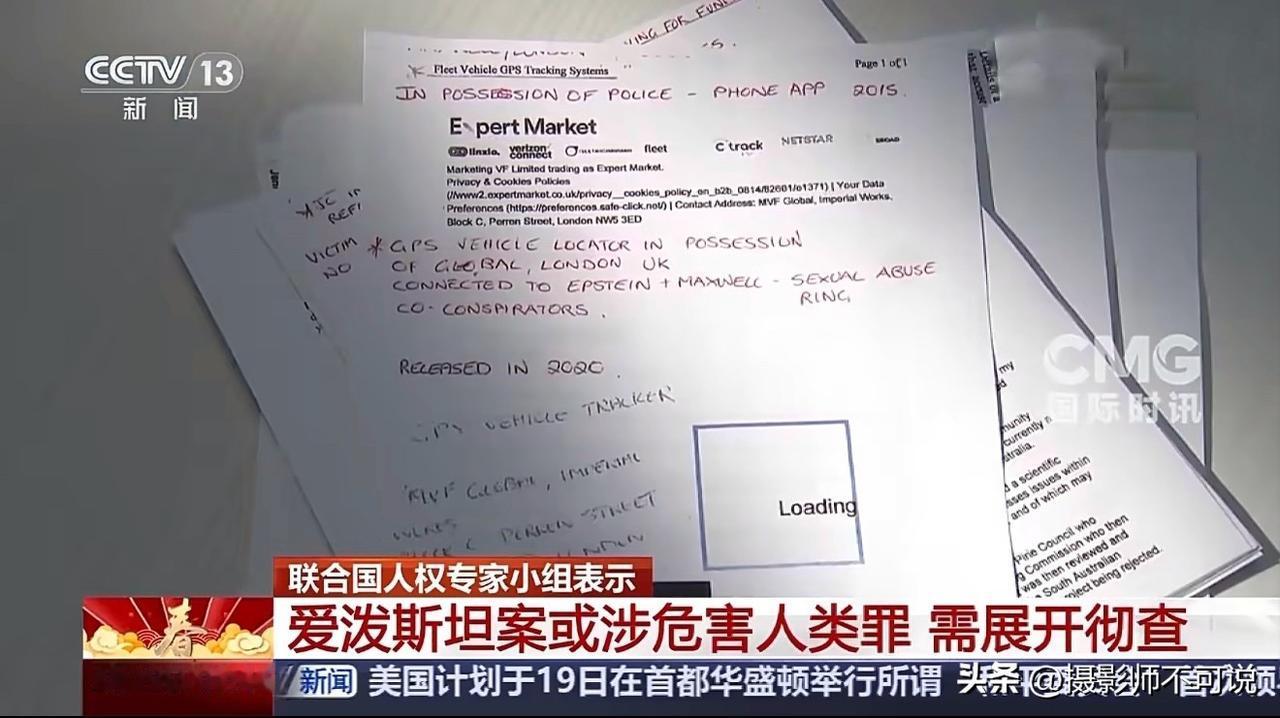 CCTV 13
新闻
Fleet Vehicle GPS Tracking Systems
Page 1 of 1
IN POSSESSION OF POLICE - PHONE APP 2015.
pert Market
linxio. verizon connect fleet Ctrack NETSTAR
Marketing VF Limited trading as Expert Market.
Privacy & Cookies Policies
(//www2.expertmarket.co.uk/privacy__cookies_policy_en_b2b_0814/82661/e1371) | Your Data
Preferences (https://preferences.safe-click.net/) | Contact Address: MVF Global, Imperial Works,
Block C, Perren Street, London NW5 3ED
VICTIM
NO
* GPS VEHICLE LOCATOR IN POSSESSION
OF GLOBAL, LONDON UK
CONNECTED TO EPSTEIN + MAXWELL - SEXUAL ABUSE
RING
CO-CONSPIRATORS.
RELEASED IN 2020.
GPS VEHICLE TRACKER
MVF GLOBAL, IMPERIAL
PERREN STREET
Loading
my
currently
a scientific
issues within
and of which may
Pirie Council who
Commission who then
was then reviewed and
South Australian
being rejected.
CMG
国际时讯
联合国人权专家小组表示
爱泼斯坦案或涉危害人类罪 需展开彻查
春
新闻 美国计划于19日在首都华盛顿举行所谓
头条 @摄影师不可说